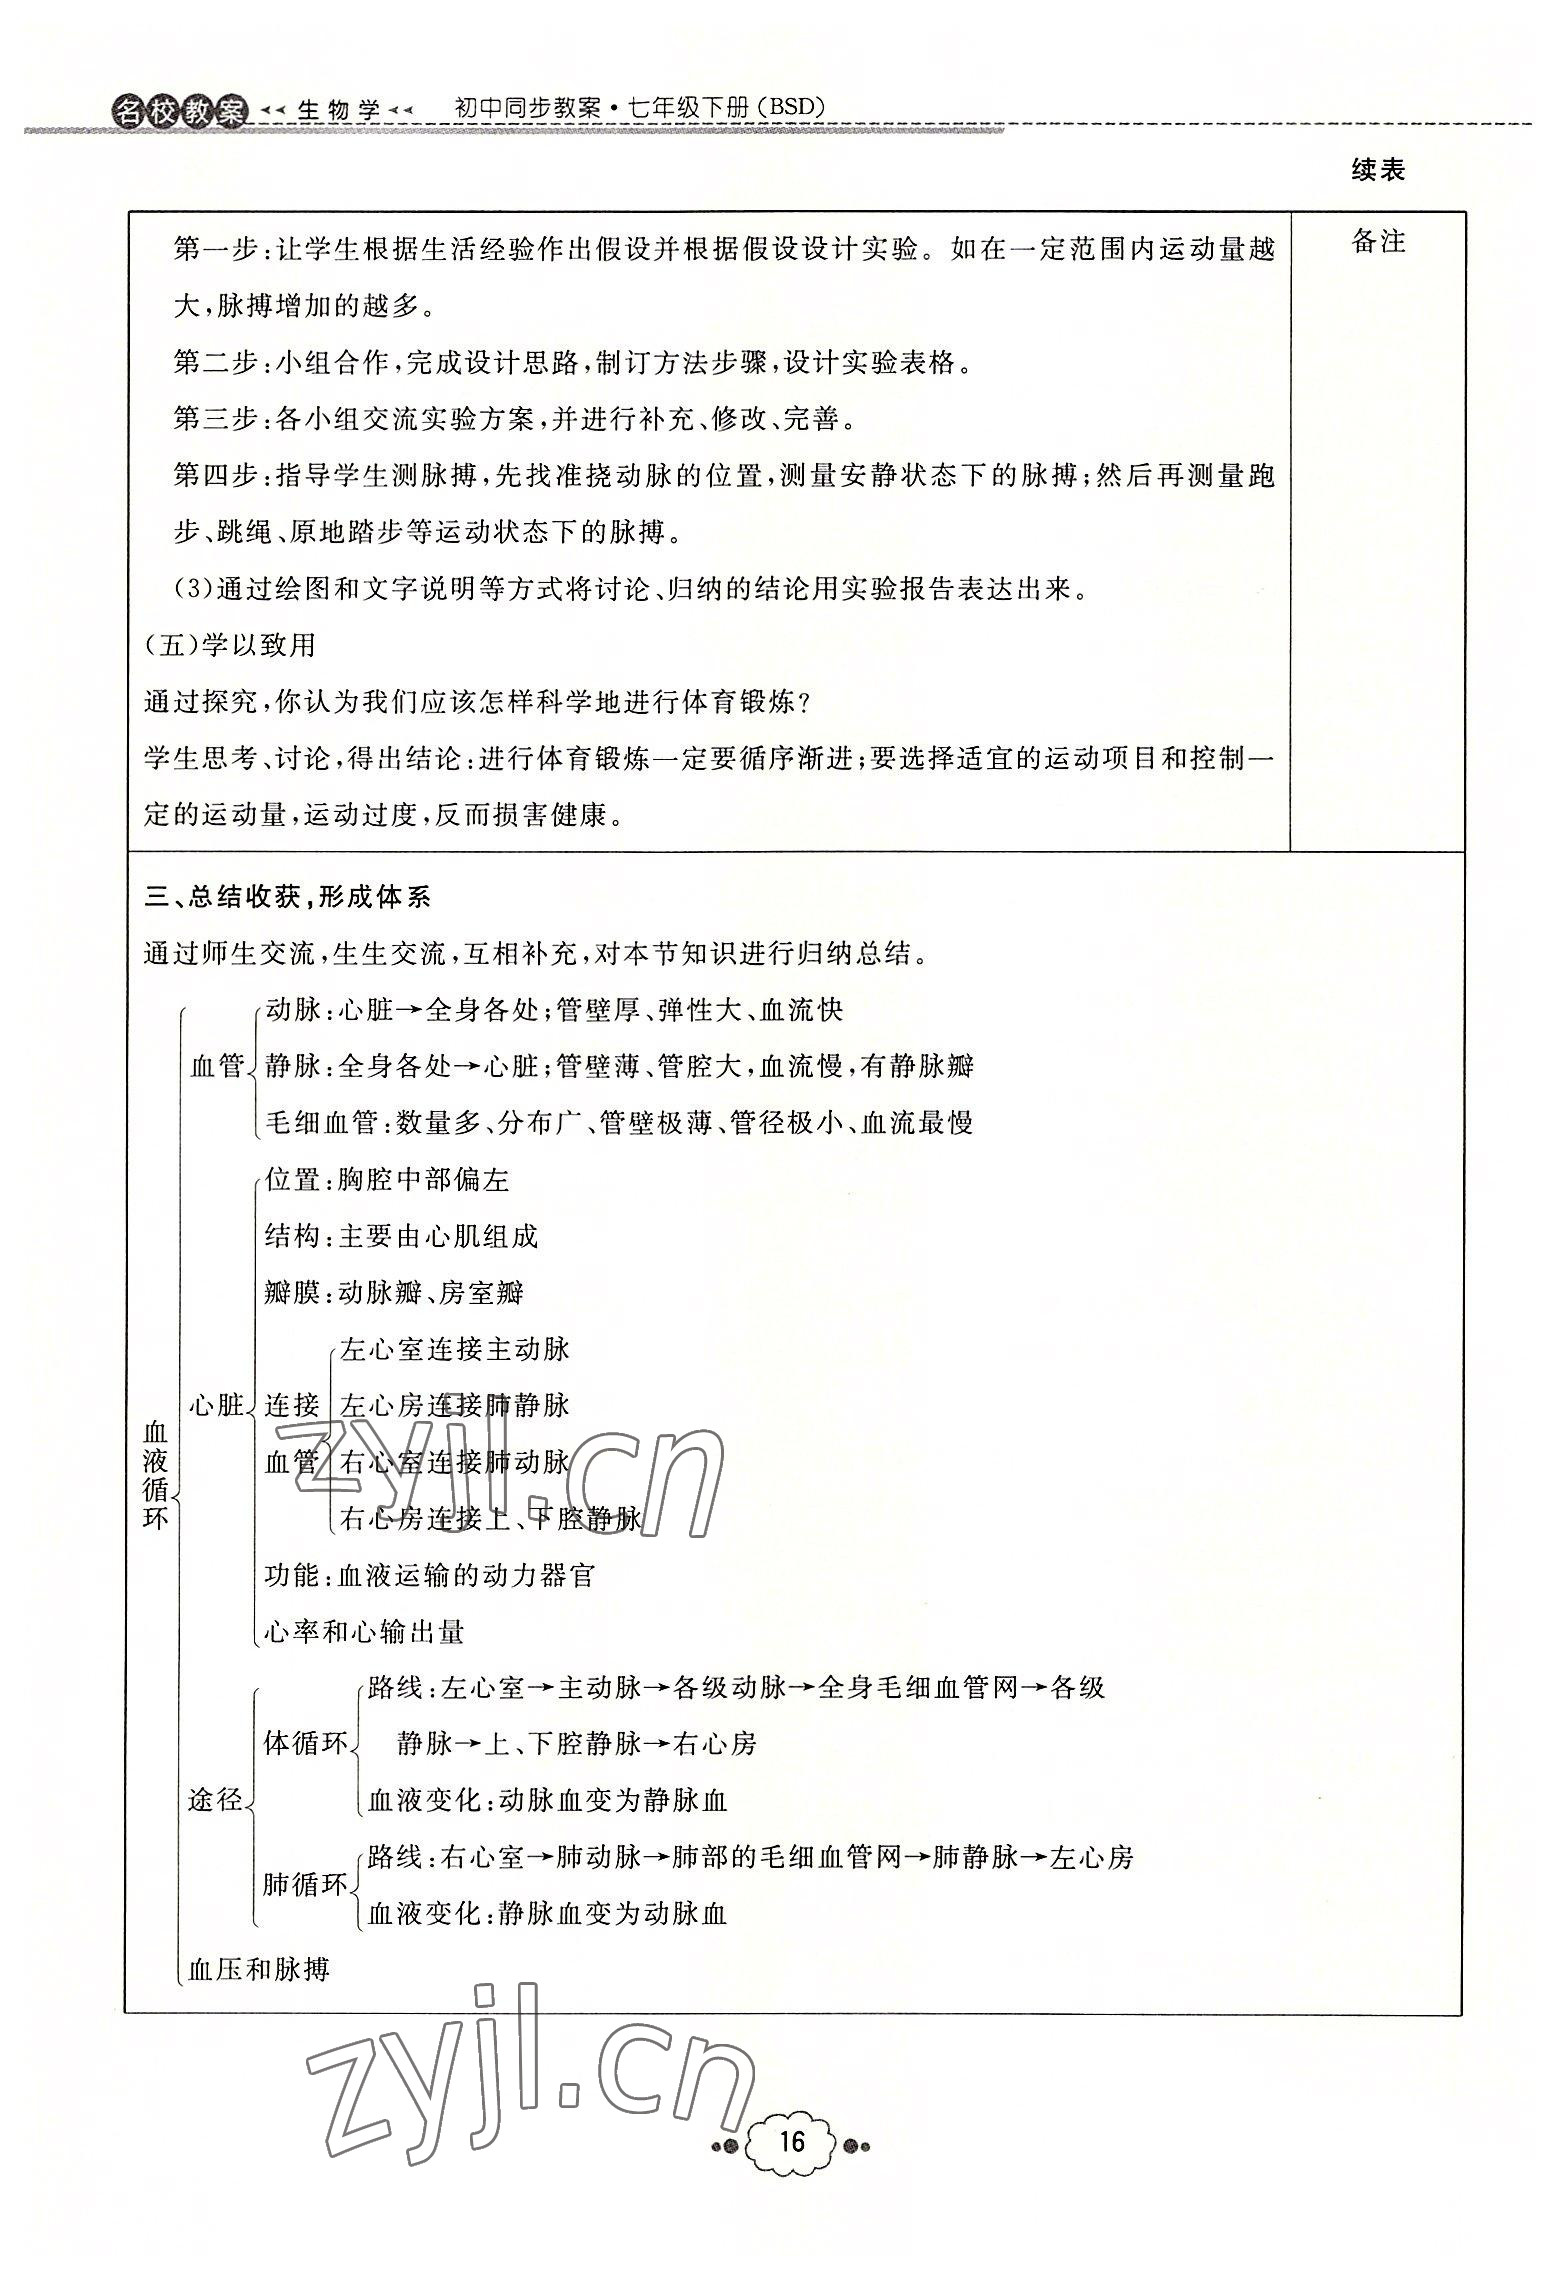 名校教案 生物学 初中同步教案·七年级下册(BSD)
续表
第一步:让学生根据生活经验作出假设并根据假设设计实验。如在一定范围内运动量越
大,脉搏增加的越多。
第二步:小组合作,完成设计思路,制订方法步骤,设计实验表格。
第三步:各小组交流实验方案,并进行补充、修改、完善。
第四步:指导学生测脉搏,先找准挠动脉的位置,测量安静状态下的脉搏;然后再测量跑
步、跳绳、原地踏步等运动状态下的脉搏。
(3)通过绘图和文字说明等方式将讨论、归纳的结论用实验报告表达出来。
(五)学以致用
通过探究,你认为我们应该怎样科学地进行体育锻炼?
学生思考、讨论,得出结论:进行体育锻炼一定要循序渐进;要选择适宜的运动项目和控制一
定的运动量,运动过度,反而损害健康。
备注
三、总结收获,形成体系
通过师生交流,生生交流,互相补充,对本节知识进行归纳总结。
血液循环
血管
动脉:心脏→全身各处;管壁厚、弹性大、血流快
静脉:全身各处→心脏;管壁薄、管腔大,血流慢,有静脉瓣
毛细血管:数量多、分布广、管壁极薄、管径极小、血流最慢
心脏
位置:胸腔中部偏左
结构:主要由心肌组成
瓣膜:动脉瓣、房室瓣
连接
血管
左心室连接主动脉
左心房连接肺静脉
右心室连接肺动脉
右心房连接上、下腔静脉
功能:血液运输的动力器官
心率和心输出量
途径
体循环
路线:左心室→主动脉→各级动脉→全身毛细血管网→各级
静脉→上、下腔静脉→右心房
血液变化:动脉血变为静脉血
肺循环
路线:右心室→肺动脉→肺部的毛细血管网→肺静脉→左心房
血液变化:静脉血变为动脉血
血压和脉搏
zyjl.cn
zyjl.cn
16